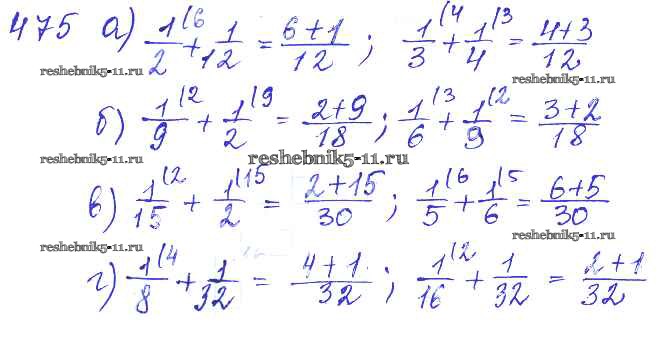 475 а) 1/2 (6 + 1/12 = 6+1/12 ; 1/3 (4 + 1/4 (3 = 4+3/12
reshebnik5-11.ru reshebnik5-11.ru
б) 1/9 (2 + 1/2 (9 = 2+9/18 ; 1/6 (3 + 1/9 (2 = 3+2/18
reshebnik5-11.ru reshebnik5-11.ru
в) 1/15 (2 + 1/2 (15 = 2+15/30 ; 1/5 (6 + 1/6 (5 = 6+5/30
reshebnik5-11.ru reshebnik5-11.ru
г) 1/8 (4 + 1/32 = 4+1/32 ; 1/16 (2 + 1/32 = 2+1/32